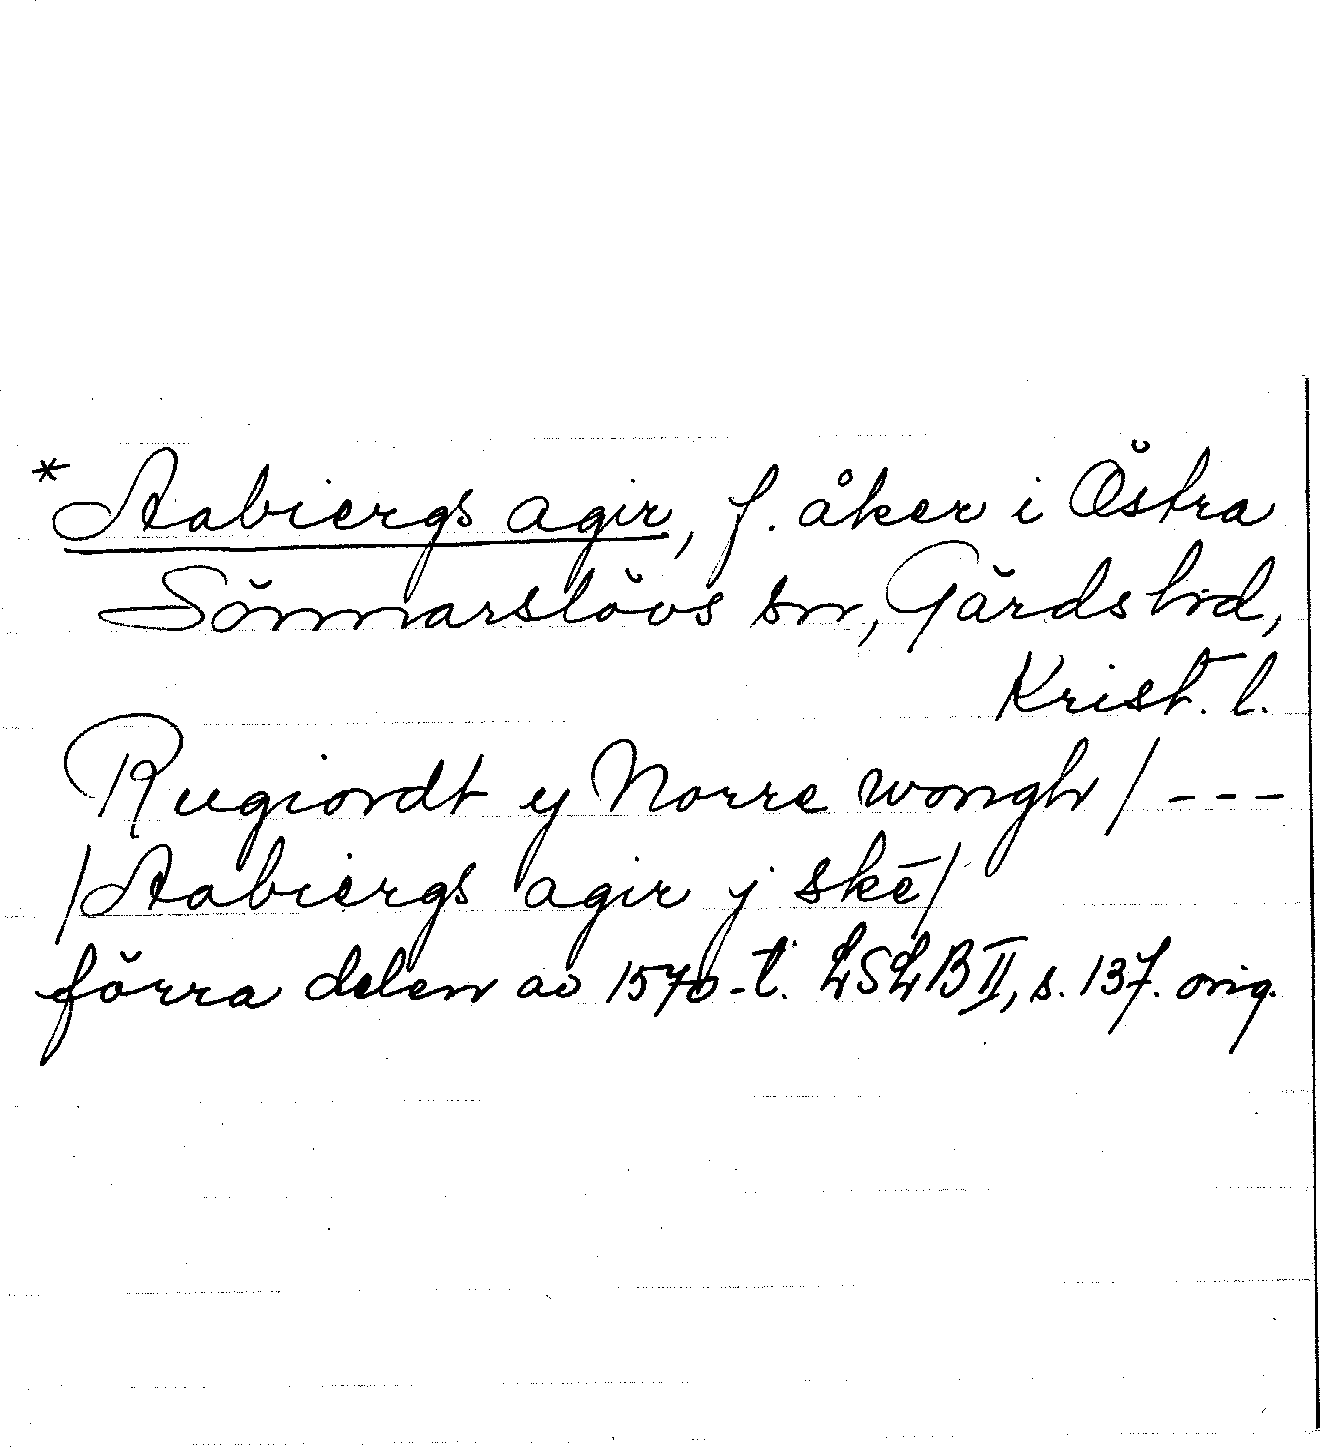 *Aabiergs agir, f. åker i Östra
Sönnarslövs sn, Gärds hd,
Krist. l.
Rugiordt y Norre wongh / ---
/Aabiergs agir j skē/
förra delen av 1570-t. LSLB II, s. 137. orig.